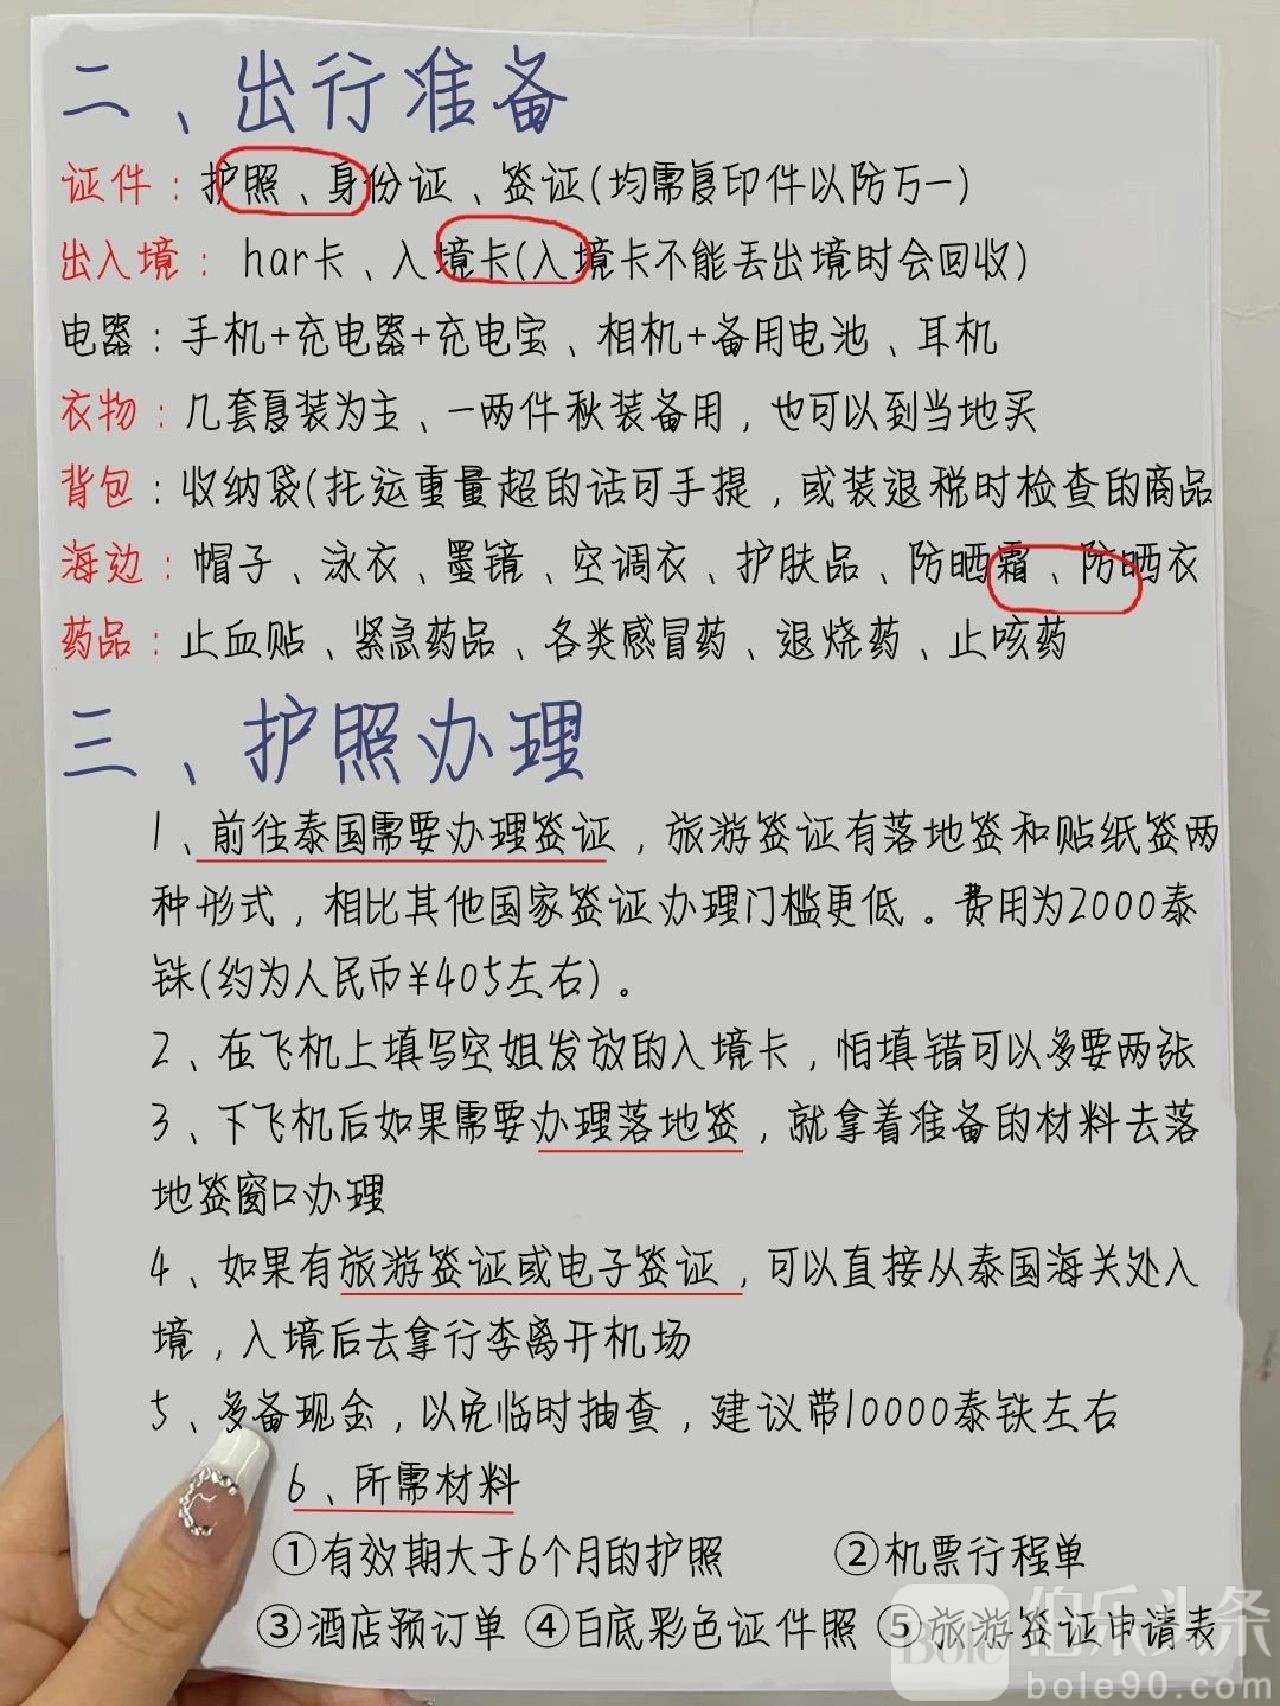 二、出行准备
证件：护照、身份证、签证(均需复印件以防万一)
出入境：har卡、入境卡(入境卡不能丢出境时会回收)
电器：手机+充电器+充电宝、相机+备用电池、耳机
衣物：几套夏装为主、一两件秋装备用，也可以到当地买
背包：收纳袋(托运重量超的话可手提，或装退税时检查的商品
海边：帽子、泳衣、墨镜、空调衣、护肤品、防晒霜、防晒衣
药品：止血贴、紧急药品、各类感冒药、退烧药、止咳药
三、护照办理
1、前往泰国需要办理签证，旅游签证有落地签和贴纸签两
种形式，相比其他国家签证办理门槛更低。费用为2000泰
铢(约为人民币¥405左右)。
2、在飞机上填写空姐发放的入境卡，怕填错可以多要两张
3、下飞机后如果需要办理落地签，就拿着准备的材料去落
地签窗口办理
4、如果有旅游签证或电子签证，可以直接从泰国海关处入
境，入境后去拿行李离开机场
5、多备现金，以免临时抽查，建议带10000泰铁左右
6、所需材料
①有效期大于6个月的护照 ②机票行程单
③酒店预订单 ④白底彩色证件照 ⑤旅游签证申请表
Bole 伯乐头条
bole90.com